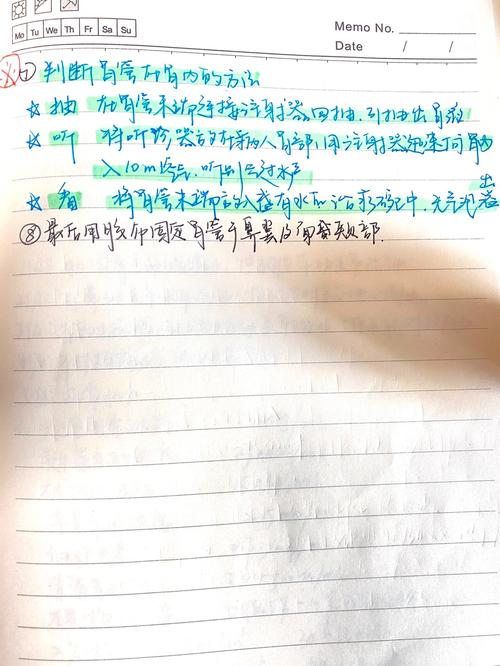 Memo No.
Mo Tu We Th Fr Sa Su
Date / /
※⑦ 判断胃管在胃内的方法
☆ 抽 在胃管末端连接注射器回抽,引抽出胃液
☆ 听 将听诊器放在病人胃部,用注射器迅速向胃内
入10ml空气,听到气过水声
☆ 看 将胃管末端放入盛有水的治疗碗中,无气泡逸
出
⑧ 最后用胶布固定胃管于鼻翼及面颊部.